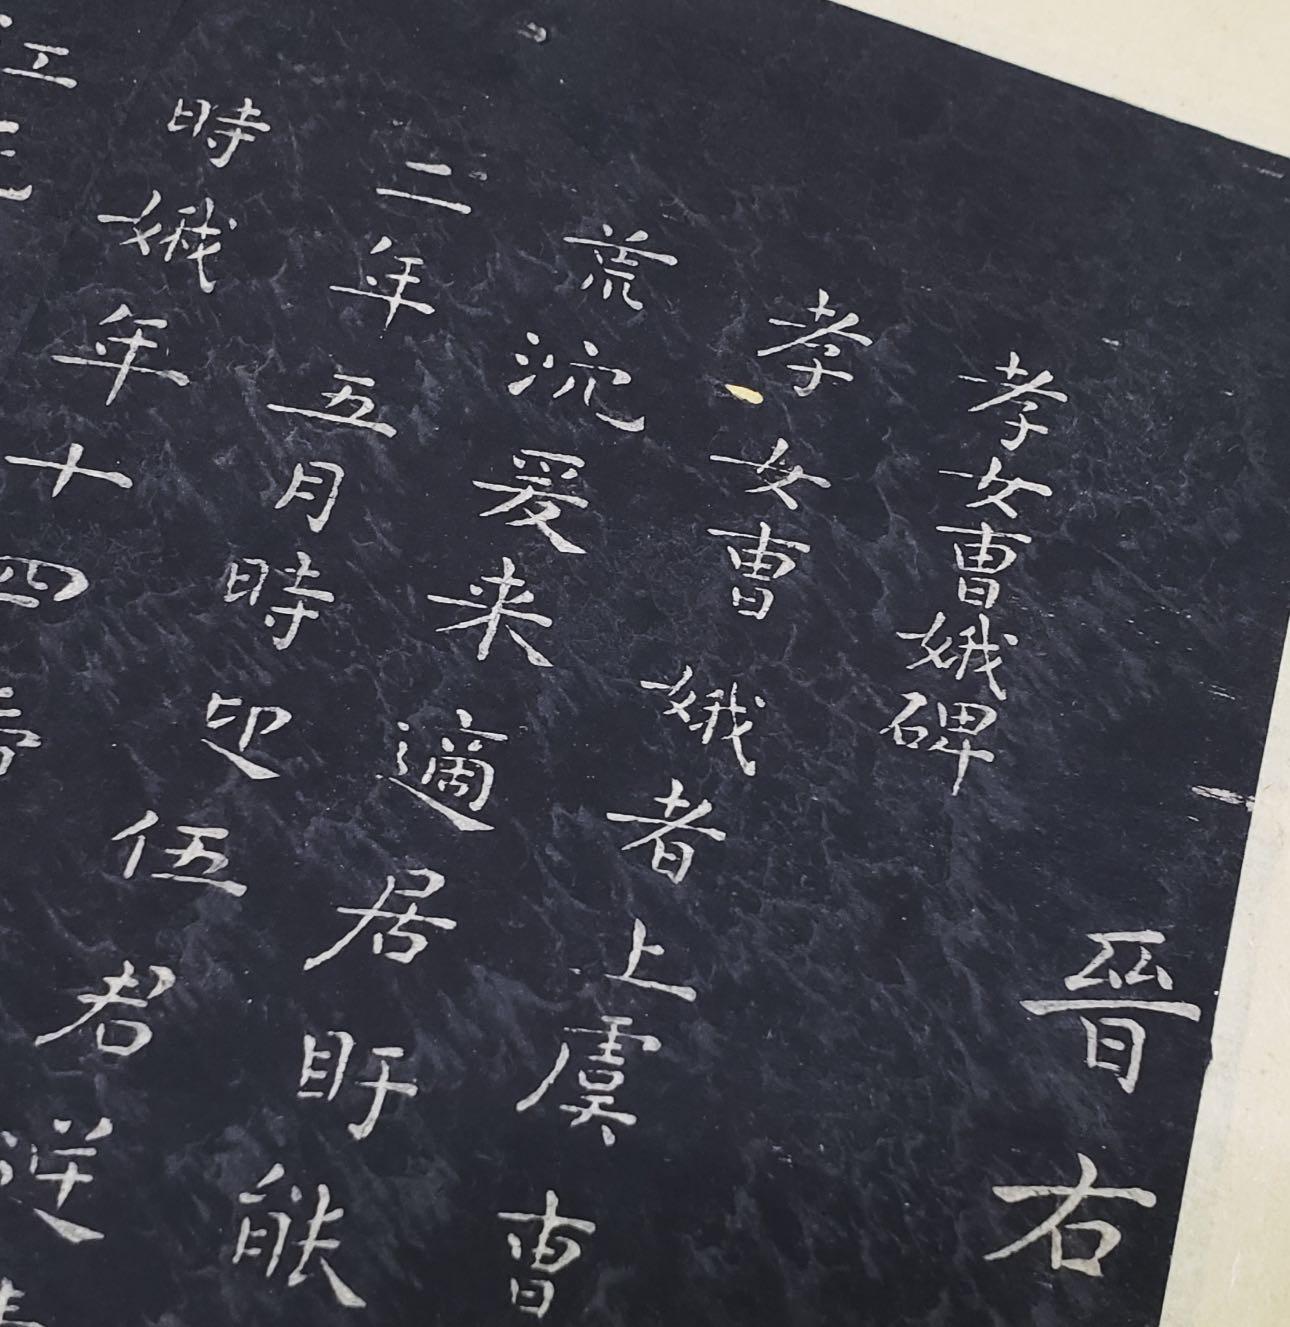 晉右
孝女曹娥碑
孝女曹娥者上虞曹
荒沈爰来適居盱能
二年五月時迎伍君逆
時娥年十四
江死